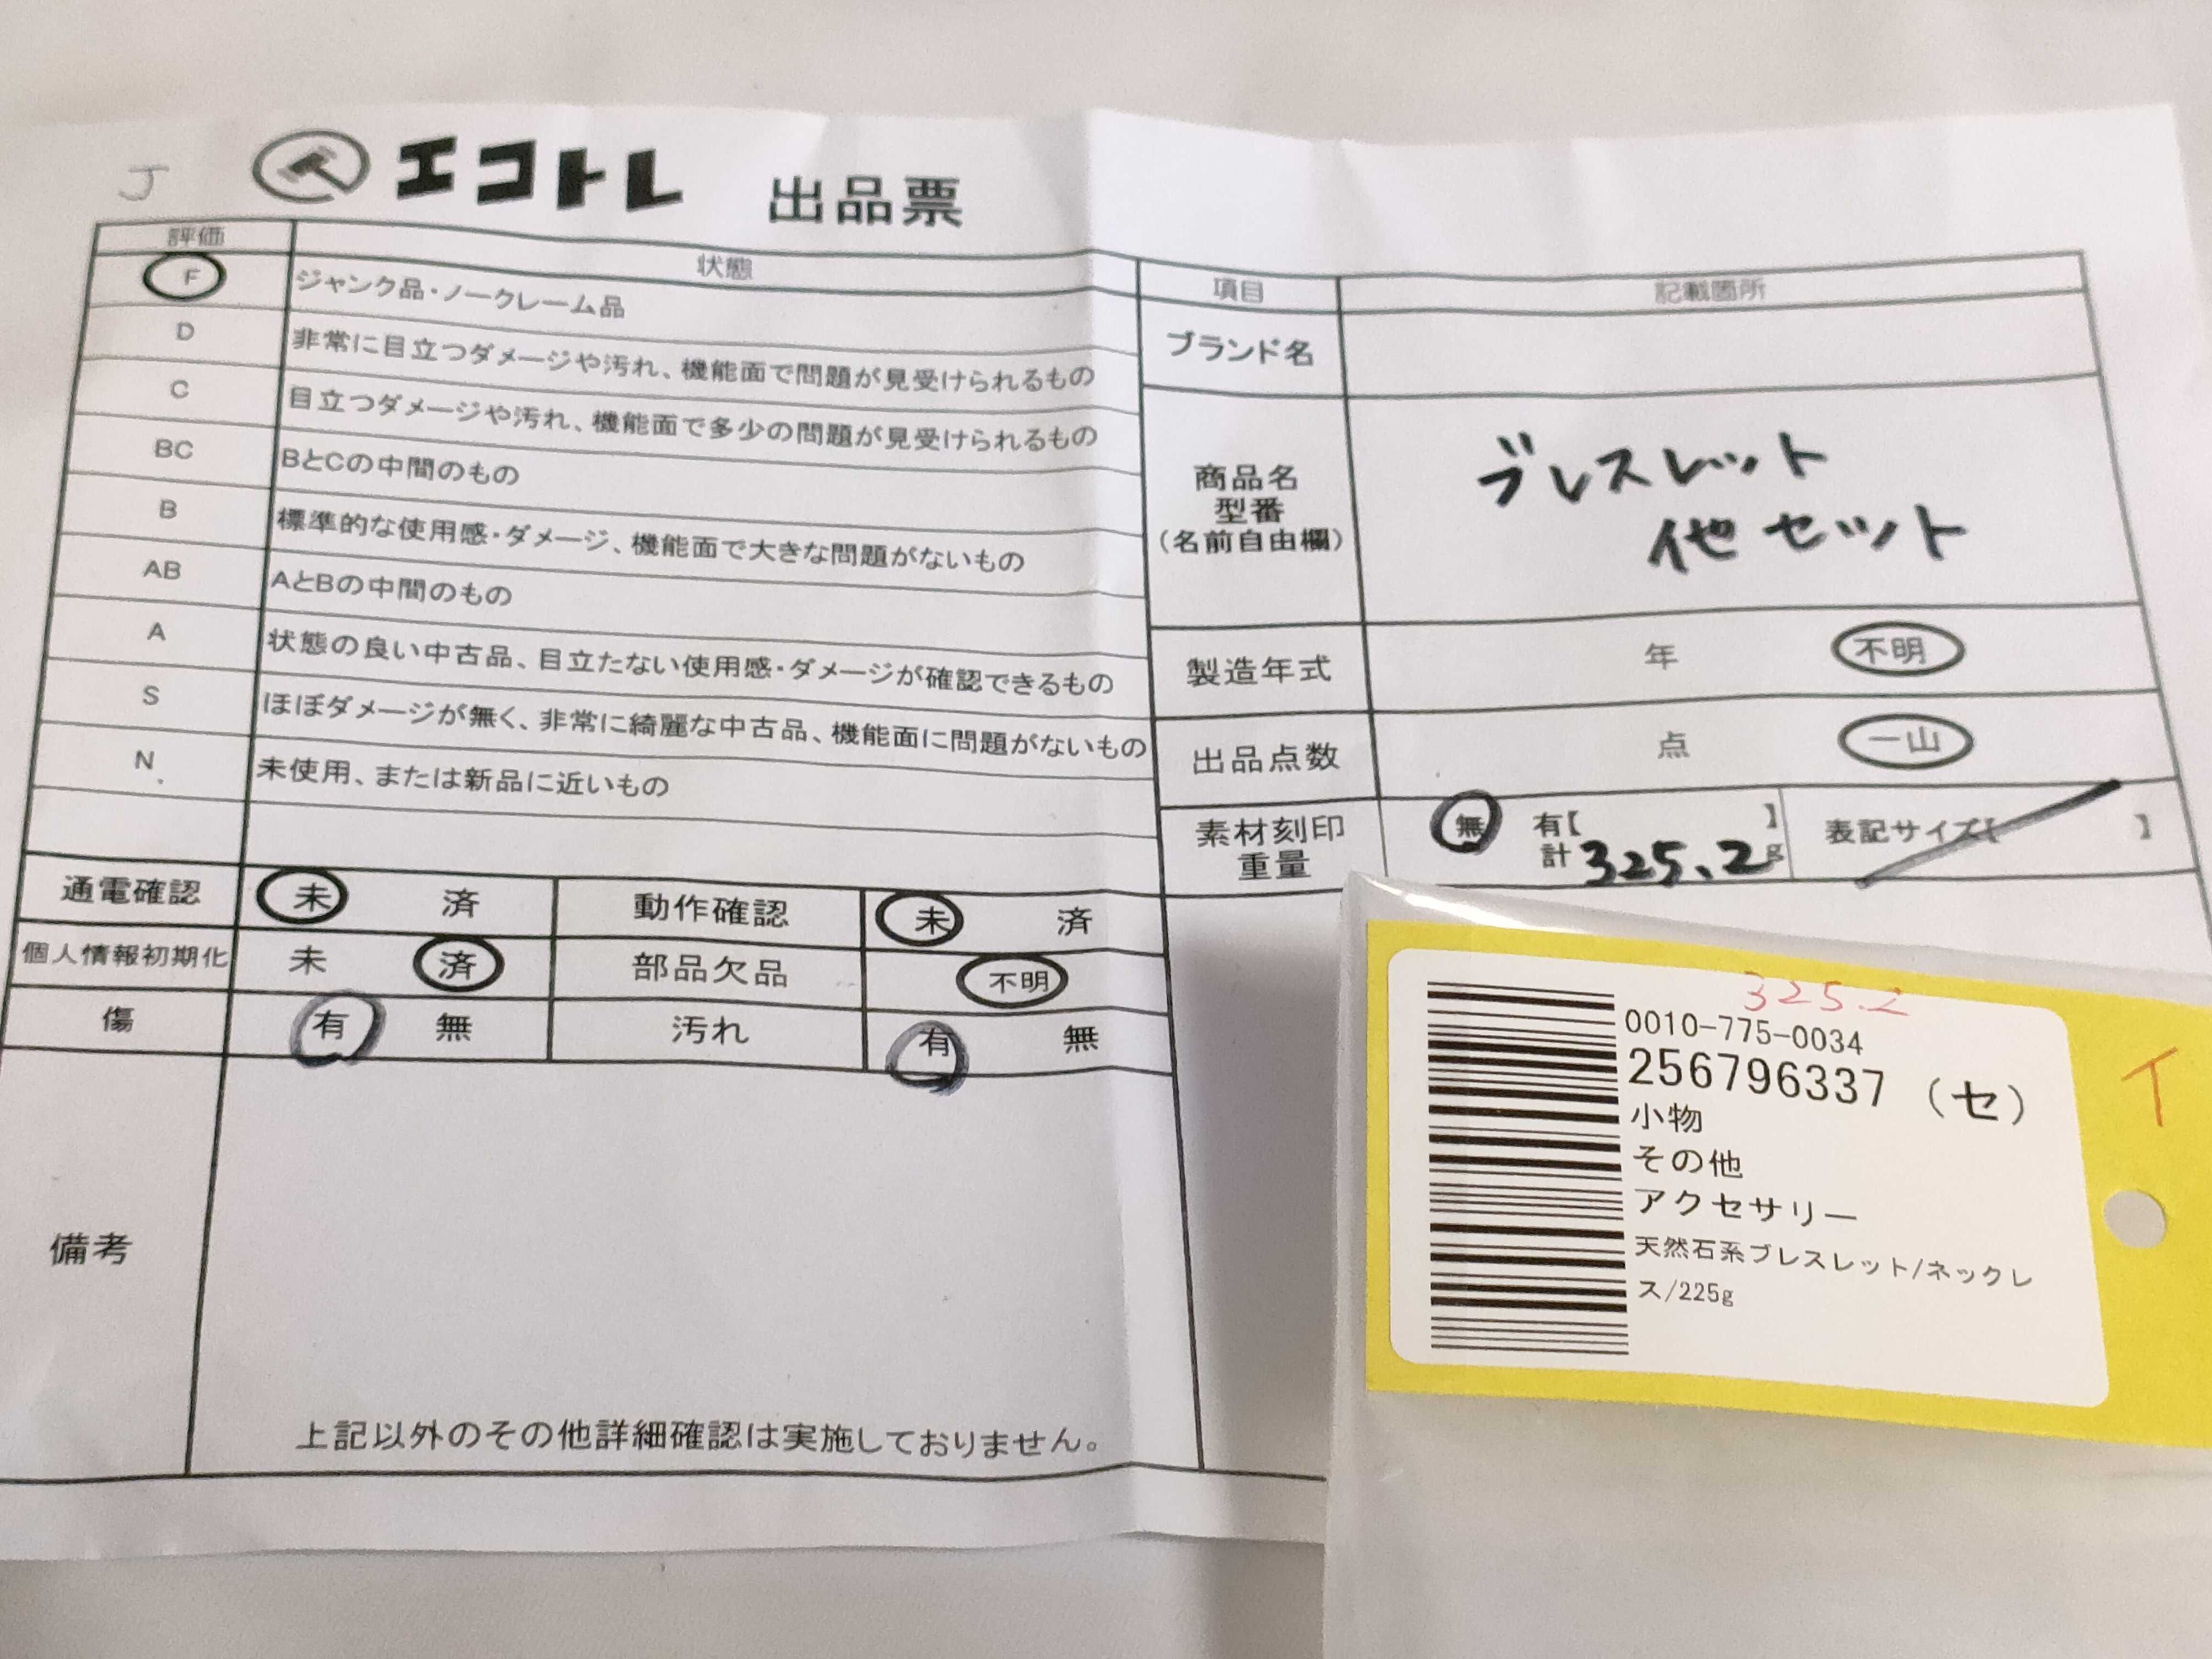 J
エコトレ 出品票
評価 状態
F ジャンク品・ノークレーム品
D 非常に目立つダメージや汚れ、機能面で問題が見受けられるもの
C 目立つダメージや汚れ、機能面で多少の問題が見受けられるもの
BC BとCの中間のもの
B 標準的な使用感・ダメージ、機能面で大きな問題がないもの
AB AとBの中間のもの
A 状態の良い中古品、目立たない使用感・ダメージが確認できるもの
S ほぼダメージが無く、非常に綺麗な中古品、機能面に問題がないもの
N 未使用、または新品に近いもの
通電確認 未 済 動作確認 未 済
個人情報初期化 未 済 部品欠品 不明
傷 有 無 汚れ 有 無
備考
上記以外のその他詳細確認は実施しておりません。
項目 記載箇所
ブランド名
商品名
型番
(名前自由欄)
ブレスレット
他セット
製造年式 年 不明
出品点数 点 一山
素材刻印
重量
無 有【 】
計 325.2g
表記サイズ【 】
325.2
0010-775-0034
256796337 (セ)
小物
その他
アクセサリー
天然石系ブレスレット/ネックレ
ス/225g
イ